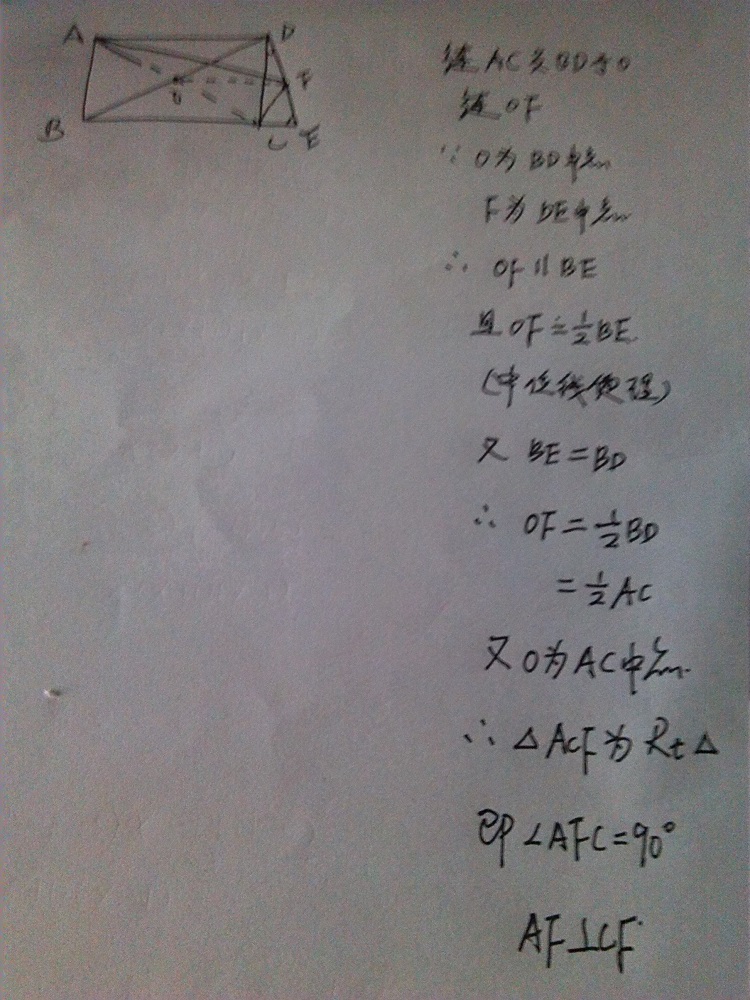 A D
F
O
B C E
连AC交BD于O
连OF
∵ O为BD中点
F为DE中点
∴ OF∥BE
且OF=½BE
(中位线定理)
又 BE=BD
∴ OF=½BD
=½AC
又O为AC中点
∴ △ACF为Rt△
即∠AFC=90°
AF⊥CF